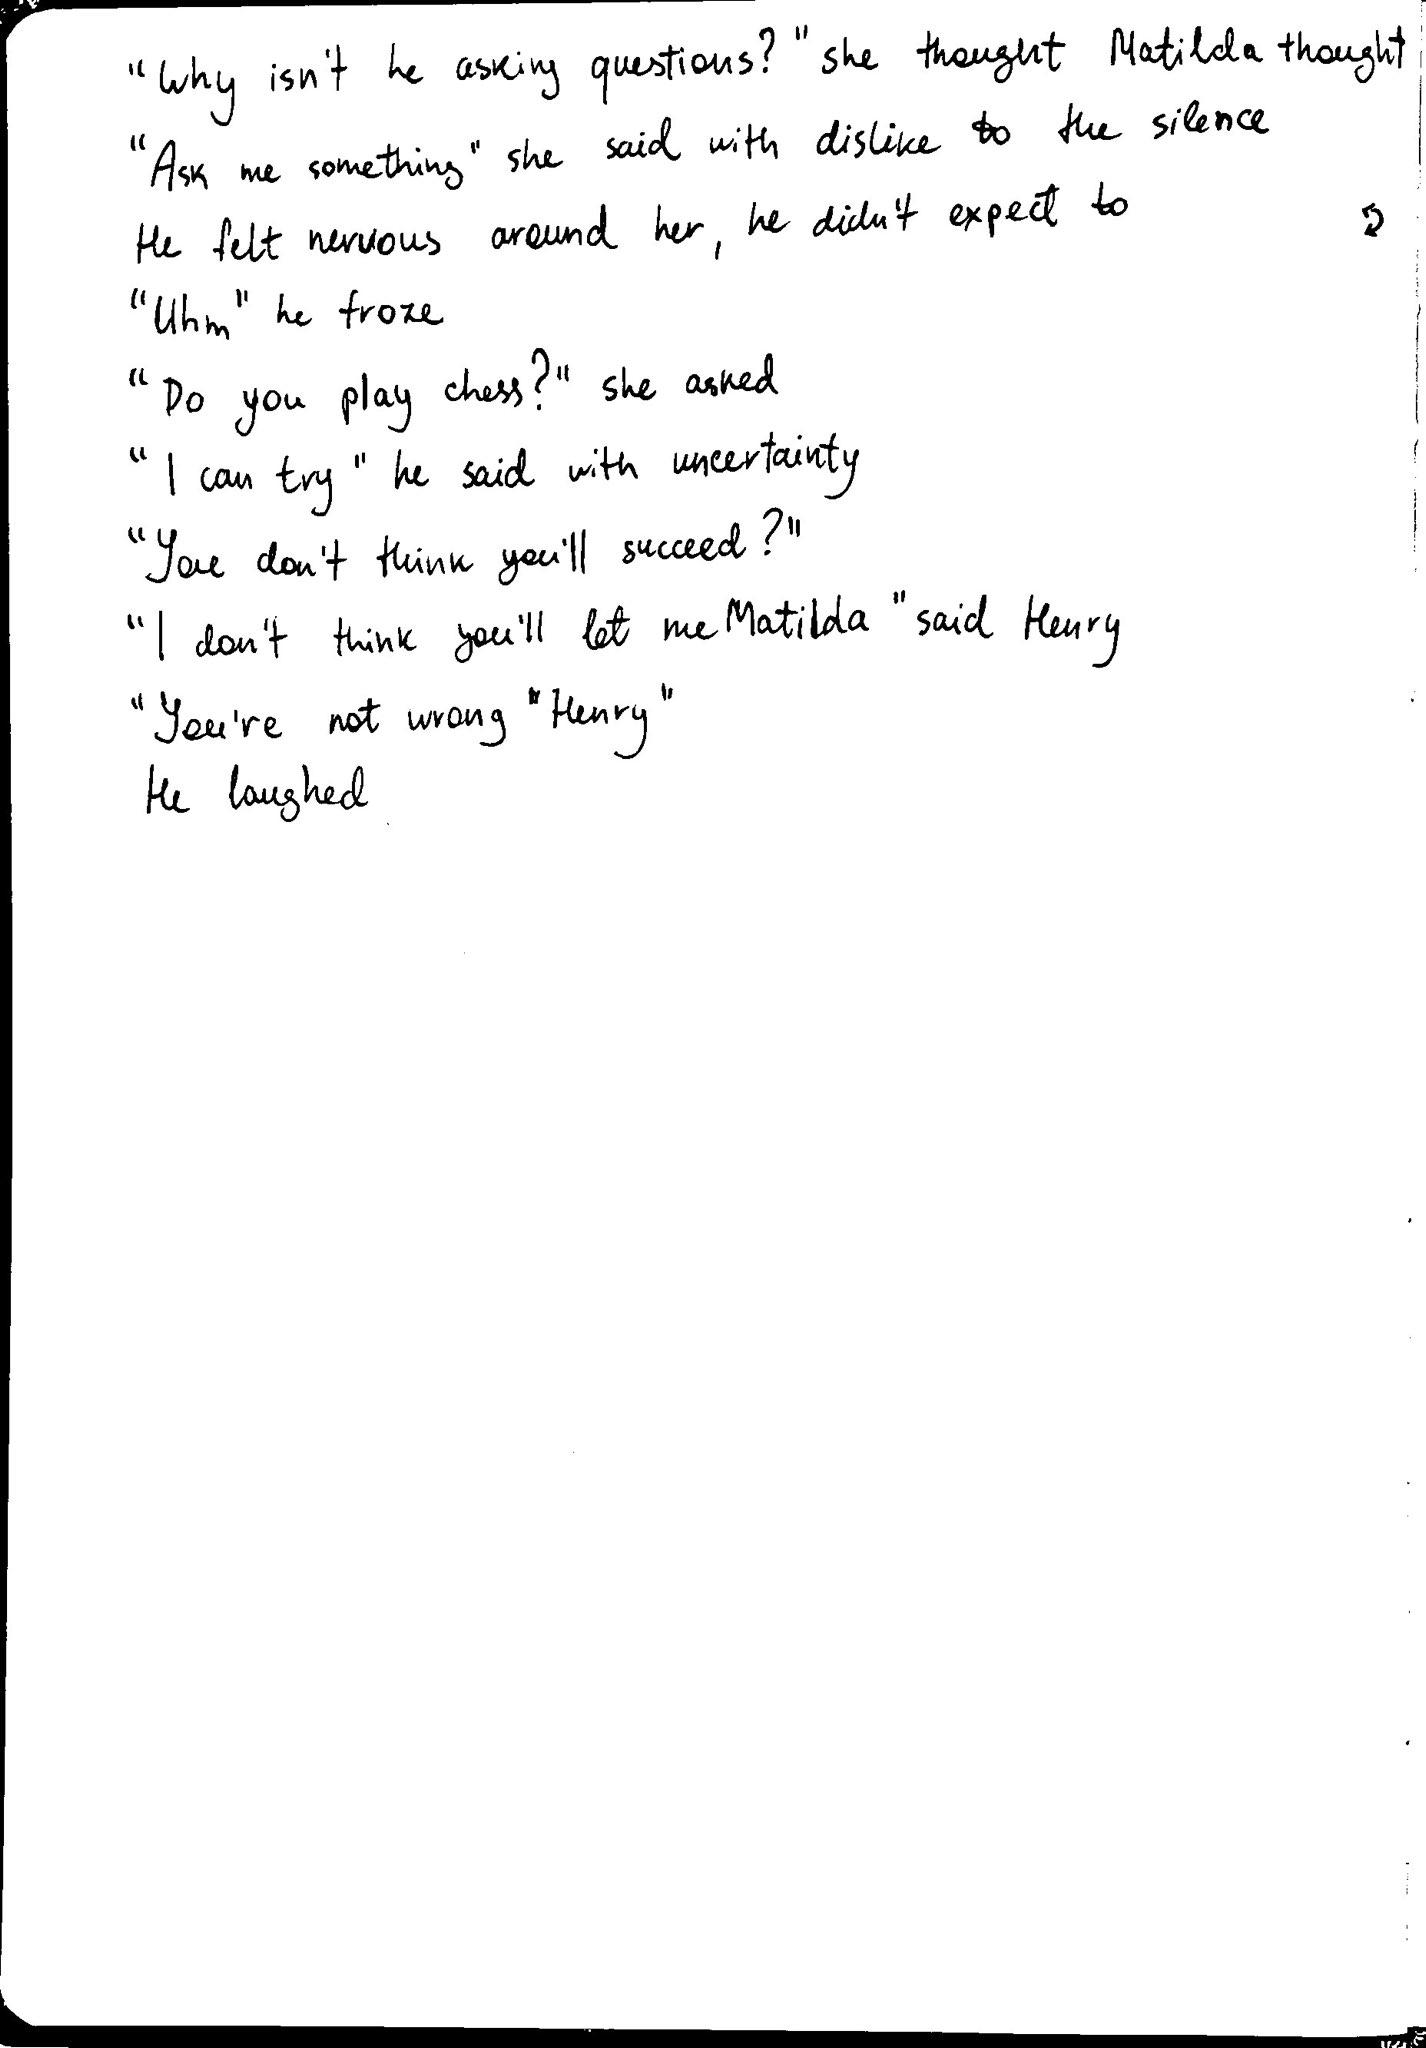 "Why isn't he asking questions?" she thought Matilda thought
"Ask me something" she said with dislike to the silence
He felt nervous around her, he didn't expect to
"Uhm" he froze
"Do you play chess?" she asked
"I can try" he said with uncertainty
"You don't think you'll succeed?"
"I don't think you'll let me Matilda" said Henry
"You're not wrong "Henry"
He laughed